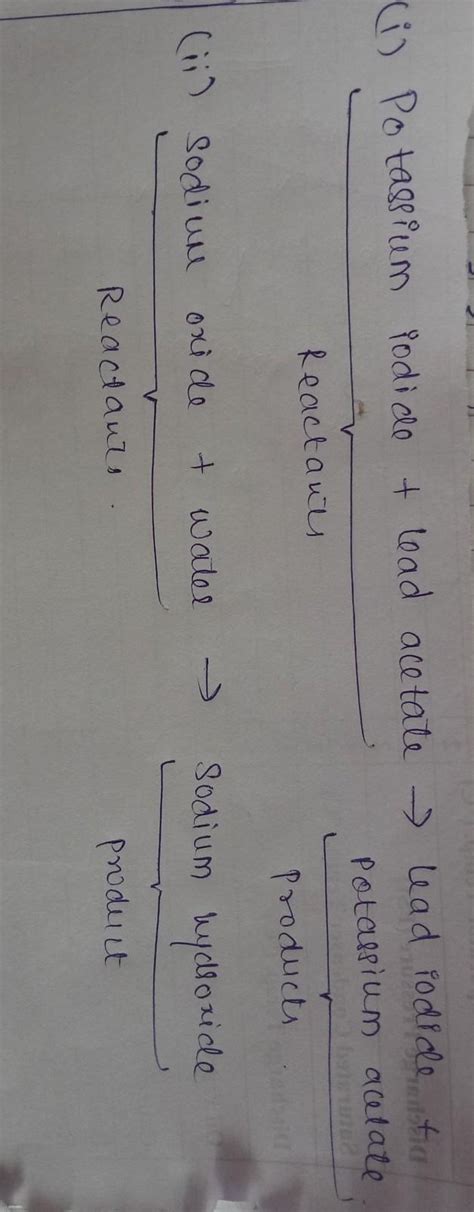 (i) Potassium iodide + lead acetate → lead iodide +
potassium acetate
Reactants
Products.
(ii) Sodium oxide + water → Sodium hydroxide
Reactants.
product